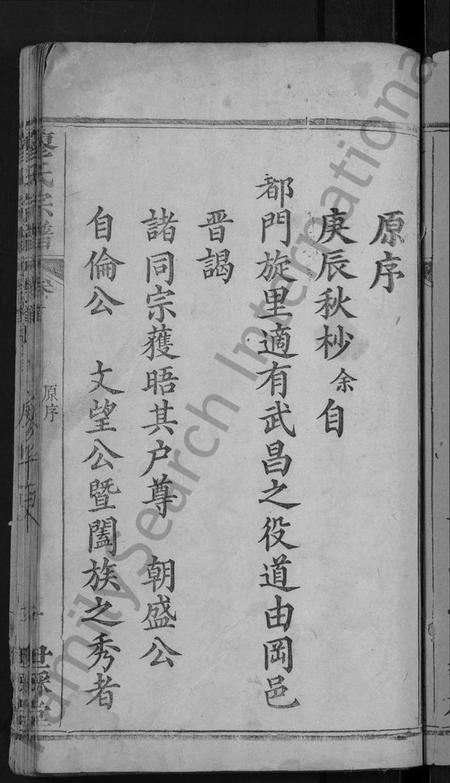 原序
庚辰秋杪余自
都門旋里適有武昌之役道由岡邑
晋謁
諸同宗獲晤其户尊 朝盛公
自倫公 文望公暨闔族之秀者
廖氏宗譜
卷首
原序
世綵堂
FamilySearch International